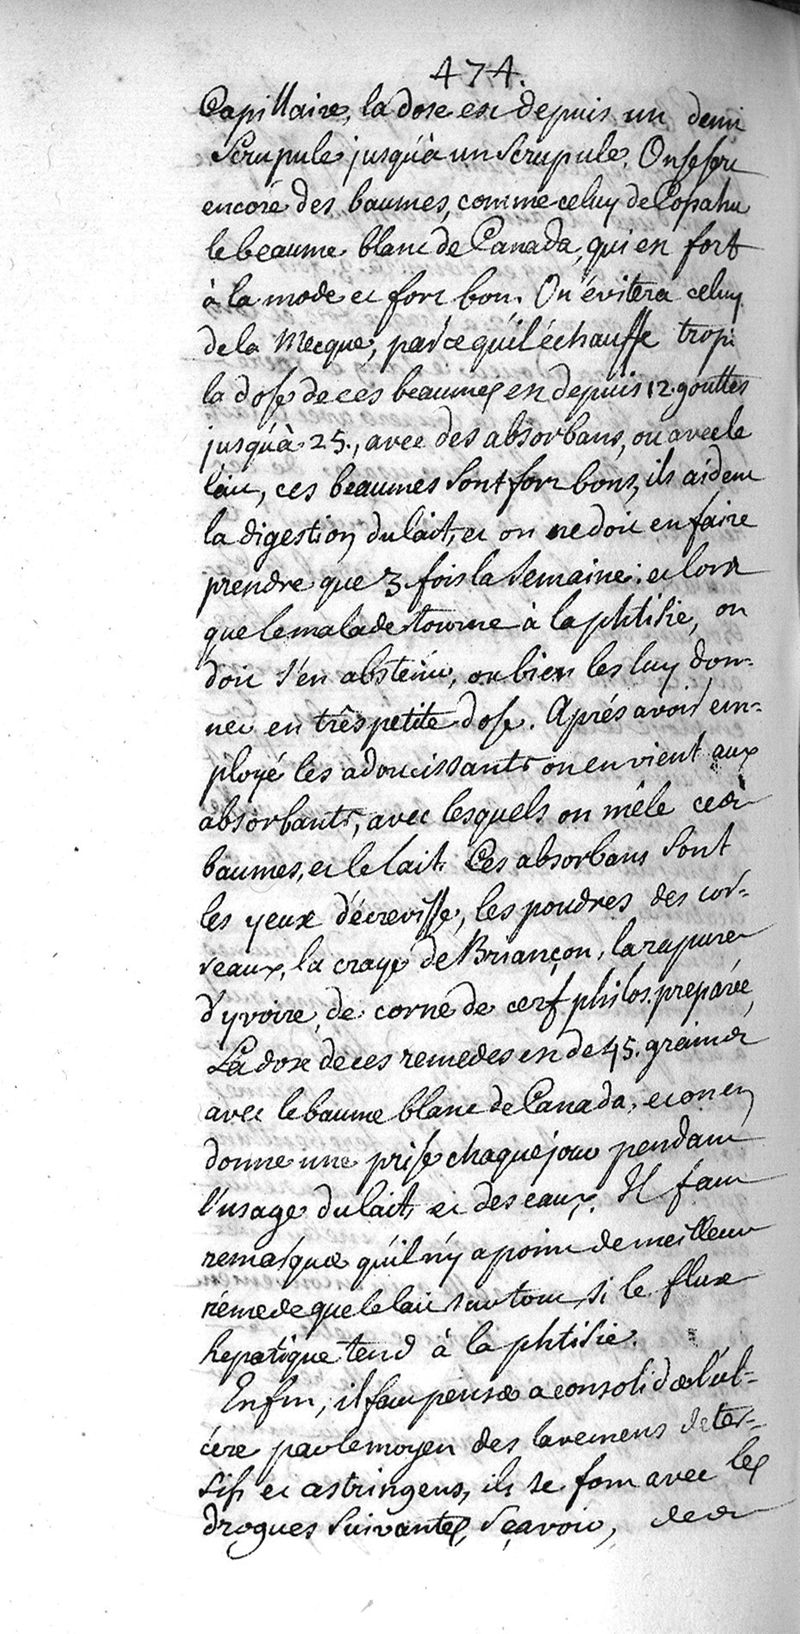 474.
Capillaire, la dose est depuis un demi
Scrupule jusqu'à un Scrupule. On se sert
encore des baumes, comme celuy de Copahu
le beaume blanc de Canada, qui est fort
à la mode et fort bon. On évitera celuy
de la Mecque, parce qu'il échauffe trop.
la dose de ces beaumes est depuis 12. gouttes
jusqu'à 25., avec des absorbans, ou avec le
lait, ces beaumes sont fort bons, ils aident
la digestion du lait, et on ne doit en faire
prendre que 3. fois la semaine: et lors
que le malade tourne à la phtisie, on
doit s'en abstenir, ou bien les luy don=
ner en très petite dose. Aprés avoir em=
ployé les adoucissants on en vient aux
absorbants, avec lesquels on mêle ces
baumes, et le lait. Ces absorbans sont
les yeux d'écrevisse, les poudres des cor=
reaux, la craye de Briançon, la rapure
d'yvoire, de corne de cerf philos. preparée,
La dose de ces remedes est de 45. grains
avec le baume blanc de Canada, et on en
donne une prise chaque jour pendant
l'usage du lait, et des eaux. Il faut
remarquer qu'il n'y a point de meilleur
rémede que le lait surtout, si le flux
hepatique tend à la phtisie.
Enfin, il faut penser a consolider l'ul=
cere par le moyen des lavemens deter=
sifs et astringens, ils se font avec les
drogues suivantes, Sçavoir, des